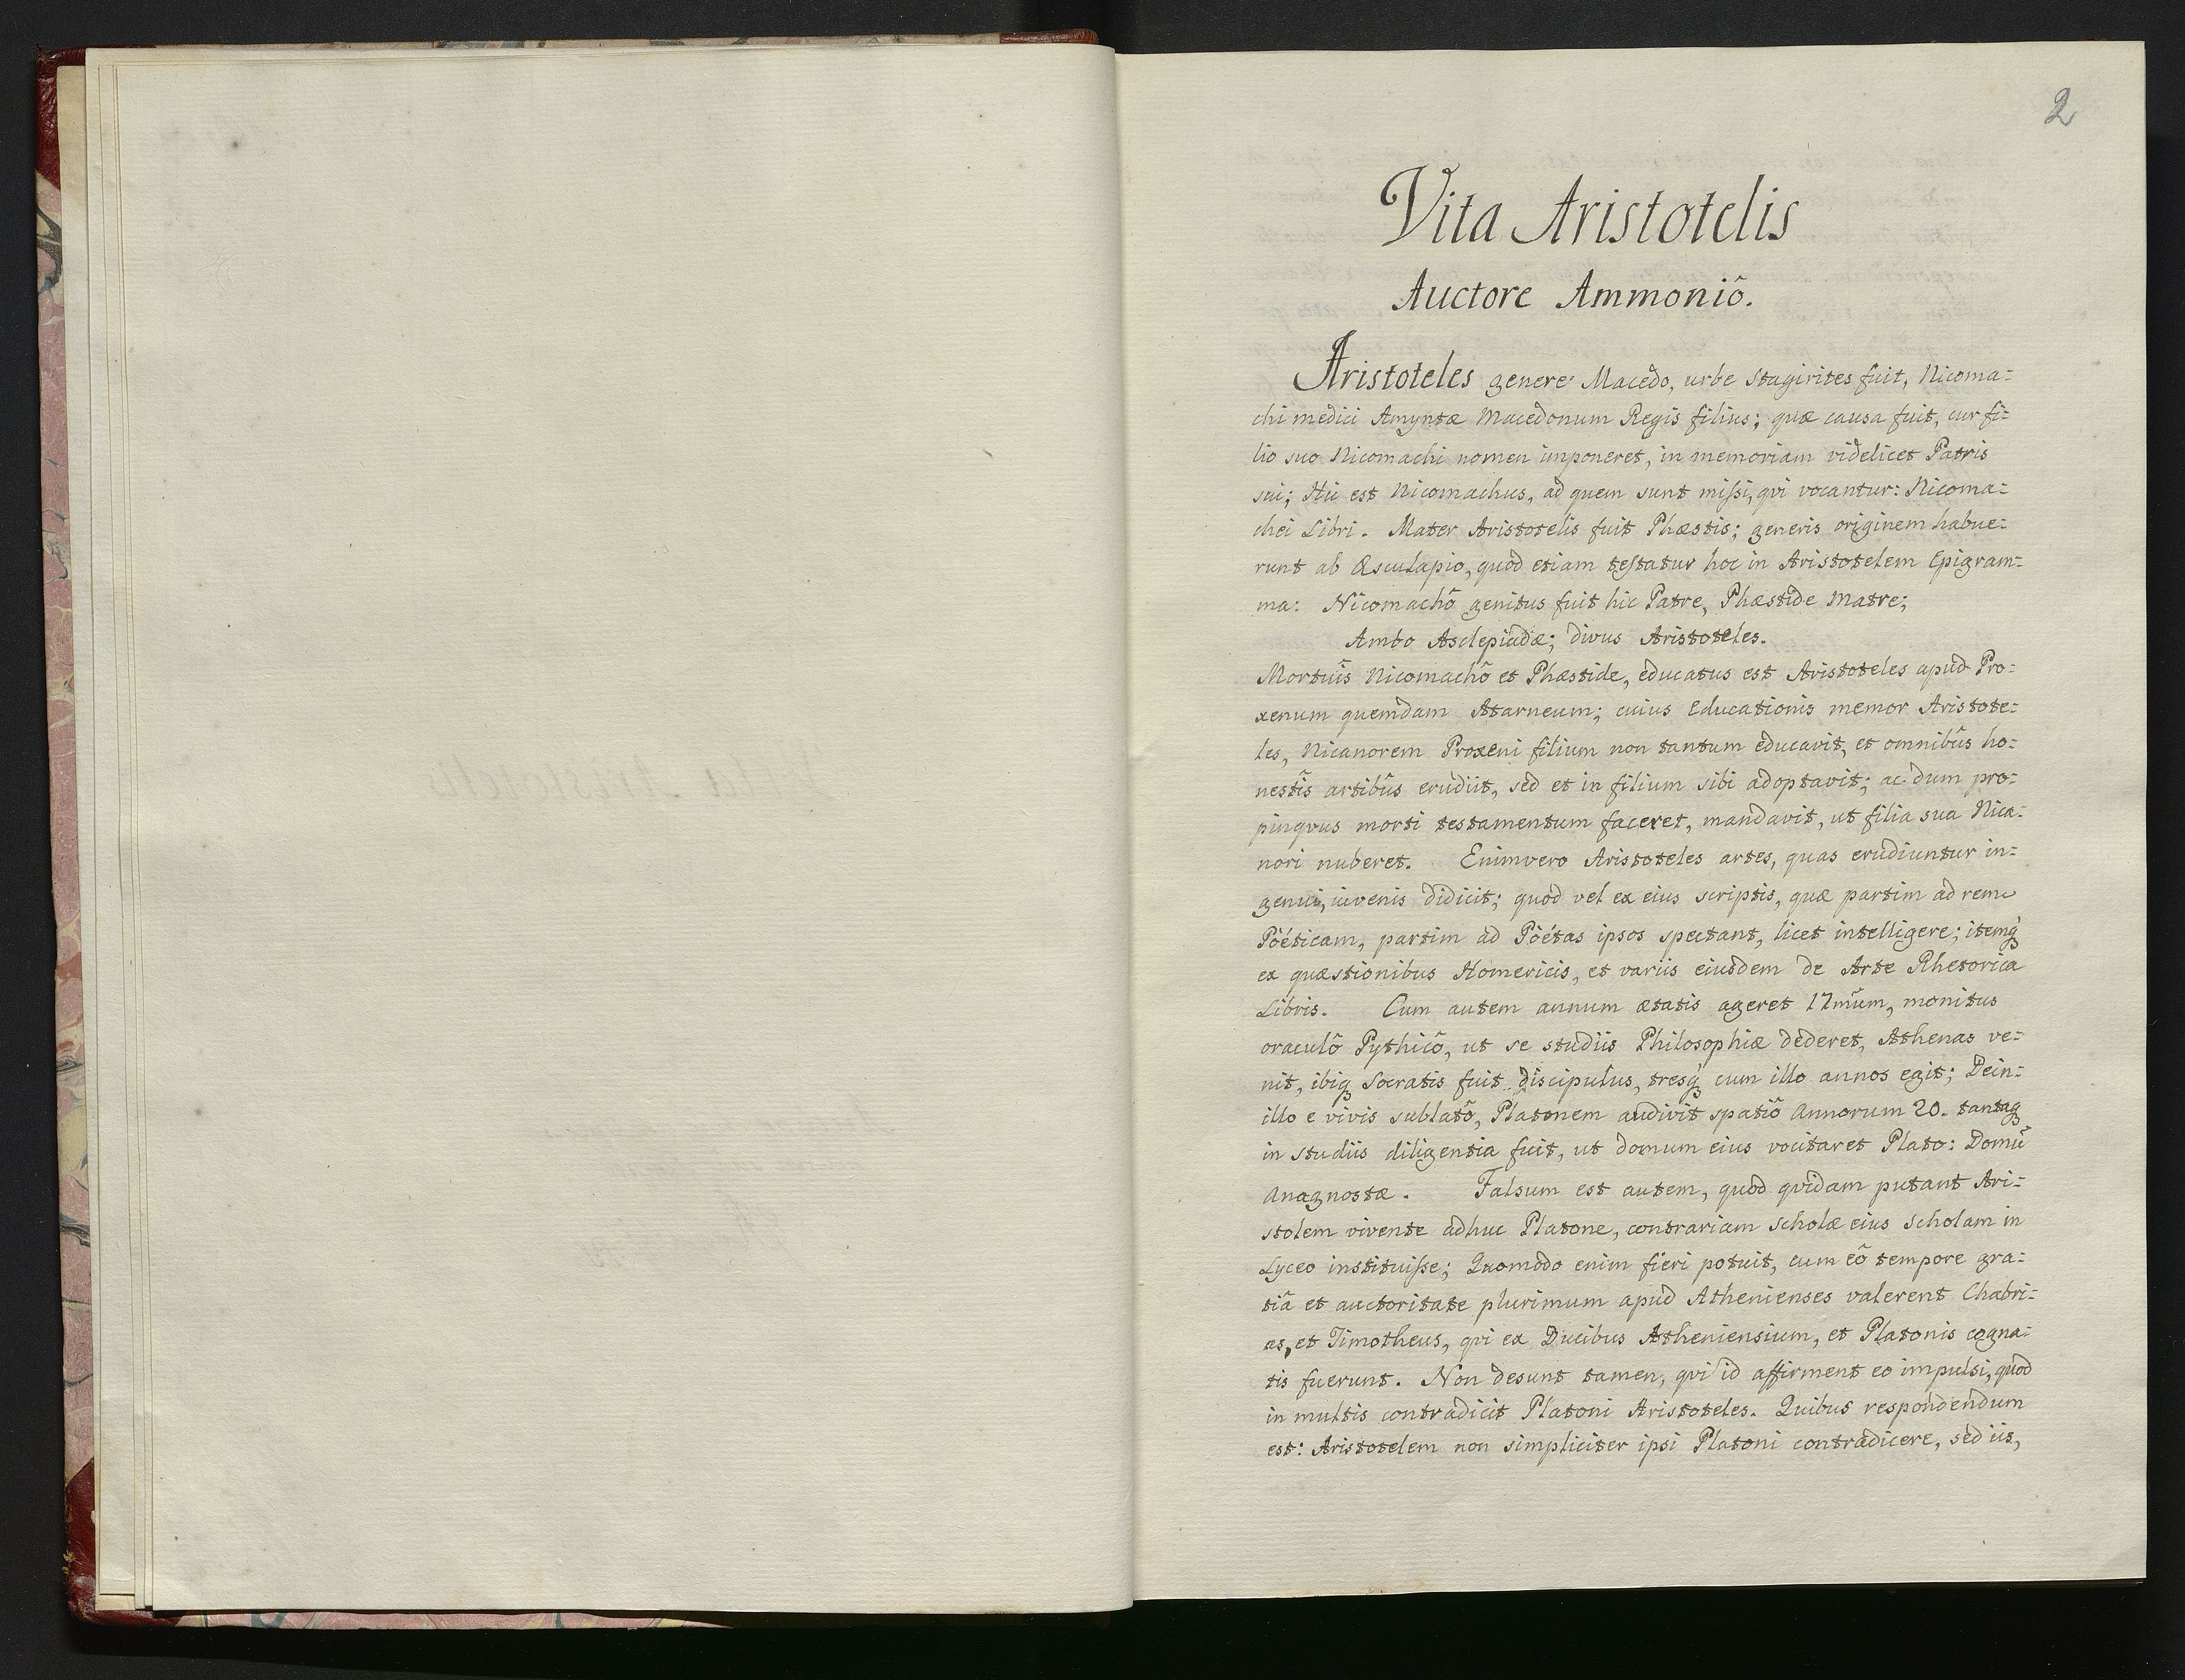 2
Vita Aristotelis
Auctore Ammoniô.
Aristoteles genere Macedo, urbe Stagirites fuit, Nicoma=
chi medici Amyntæ Macedonum Regis filius; quæ causa fuit, cur fi=
lio suo Nicomachi nomen imponeret, in memoriam videlicet Patris
sui; Hic est Nicomachus, ad quem sunt mißi, qvi vocantur: Nicoma=
chei Libri. Mater Aristotelis fuit Phæstis; generis originem habue=
runt ab Æsculapio, quod etiam testatur hoc in Aristotelem Epigram=
ma: Nicomachô genitus fuit hic Patre, Phæstide Matre;
Ambo Asclepiadæ; divus Aristoteles.
Mortuîs Nicomachô et Phæstide, educatus est Aristoteles apud Pro=
xenum quemdam Atarneum; cuius Educationis memor Aristote=
les, Nicanorem Proxeni filium non tantum educavit, et omnibûs ho=
nestîs artibûs erudiit, sed et in filium sibi adoptavit; ac dum pro=
pinqvus morti testamentum faceret, mandavit, ut filia sua Nica=
nori nuberet. Enimvero Aristoteles artes, quas erudiuntur in=
genui, iuvenis didicit; quod vel ex eius scriptis, quæ partim ad rem
Pöéticam, partim ad Pöétas ipsos spectant, licet intelligere; itemq́
ex quæstionibus Homericis, et variis eiusdem de Arte Rhetorica
Libris. Cum autem annum ætatis ageret 17mum, monitus
oraculô Pythicô, ut se studiis Philosophiæ dederet, Athenas ve=
nit, ibiq Socratis fuit discipulus, tresq́ cum illo annos egit; Dein=
illo e vivis sublatô, Platonem audivit spatiô Annorum 20. tantaq
in studiis diligentia fuit, ut domum eius vocitaret Plato: Domũ
Anagnostæ. Falsum est autem, quod qvidam putant Ari=
stolem vivente adhuc Platone, contrariam scholæ eius scholam in
Lyceo instituiße; Quomodo enim fieri potuit, cum eô tempore gra=
tiâ et auctoritate plurimum apud Athenienses valerent Chabri=
as, et Timotheus, qvi ex Ducibus Atheniensium, et Platonis cogna=
tis fuerunt. Non desunt tamen, qvi id affirment eo impulsi, quod
in multis contradicit Platoni Aristoteles. Quibus respondendum
est: Aristotelem non simpliciter ipsi Platoni contradicere, sed iis,